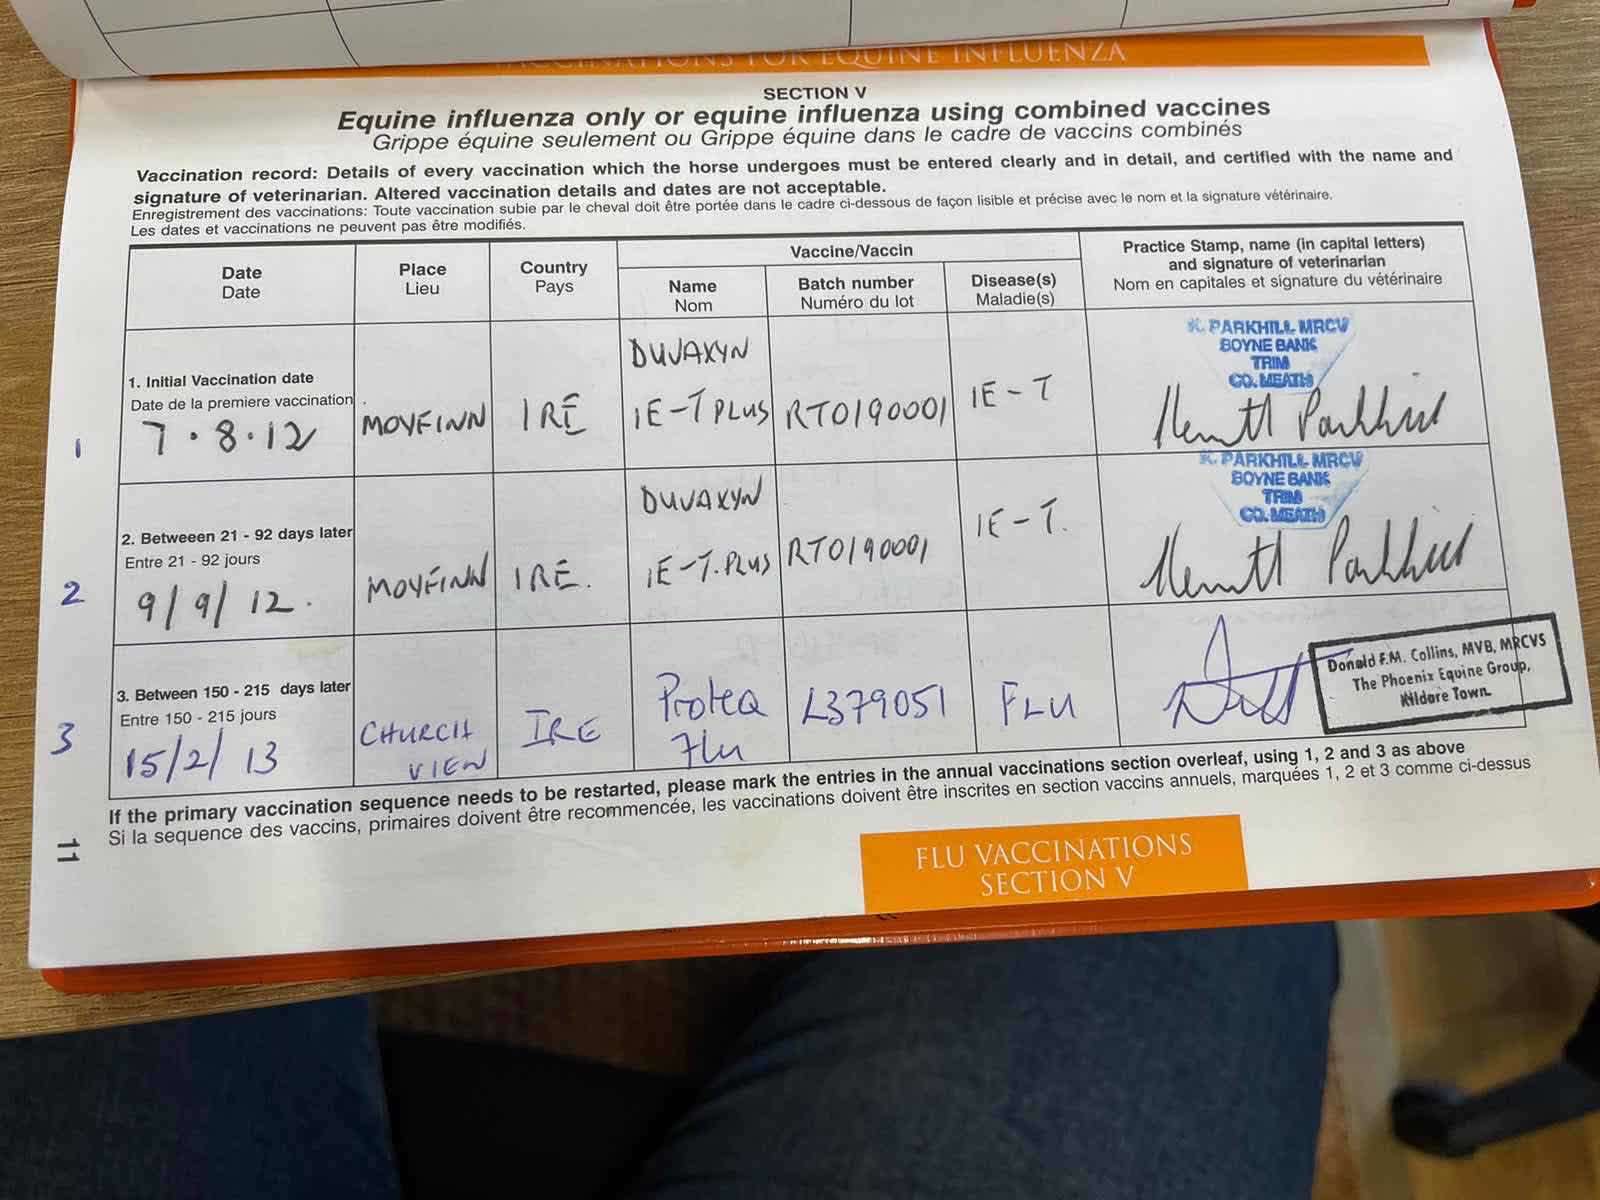 VACCINATIONS FOR EQUINE INFLUENZA
SECTION V
Equine influenza only or equine influenza using combined vaccines
Grippe équine seulement ou Grippe équine dans le cadre de vaccins combinés
Vaccination record: Details of every vaccination which the horse undergoes must be entered clearly and in detail, and certified with the name and
signature of veterinarian. Altered vaccination details and dates are not acceptable.
Enregistrement des vaccinations: Toute vaccination subie par le cheval doit être portée dans le cadre ci-dessous de façon lisible et précise avec le nom et la signature vétérinaire.
Les dates et vaccinations ne peuvent pas être modifiés.
Date
Date
Place
Lieu
Country
Pays
Vaccine/Vaccin
Name
Nom
Batch number
Numéro du lot
Disease(s)
Maladie(s)
Practice Stamp, name (in capital letters)
and signature of veterinarian
Nom en capitales et signature du vétérinaire
1
1. Initial Vaccination date
Date de la premiere vaccination
7.8.12
MOYFINN
IRE
DUVAXYN
IE-T PLUS
RT0190001
IE-T
K. PARKHILL MRCV
BOYNE BANK
TRIM
CO. MEATH
Parkhill
2
2. Betweeen 21 - 92 days later
Entre 21 - 92 jours
9/9/12.
MOYFINN
IRE.
DUVAXYN
IE-T.PLUS
RT0190001
IE-T.
K. PARKHILL MRCV
BOYNE BANK
TRIM
CO. MEATH
Parkhill
3
3. Between 150 - 215 days later
Entre 150 - 215 jours
15/2/13
CHURCH
VIEW
IRE
Proteq
Flu
L379051
FLU
Donald F.M. Collins, MVB, MRCVS
The Phoenix Equine Group,
Kildare Town.
If the primary vaccination sequence needs to be restarted, please mark the entries in the annual vaccinations section overleaf, using 1, 2 and 3 as above
Si la sequence des vaccins, primaires doivent être recommencée, les vaccinations doivent être inscrites en section vaccins annuels, marquées 1, 2 et 3 comme ci-dessus
11
FLU VACCINATIONS
SECTION V